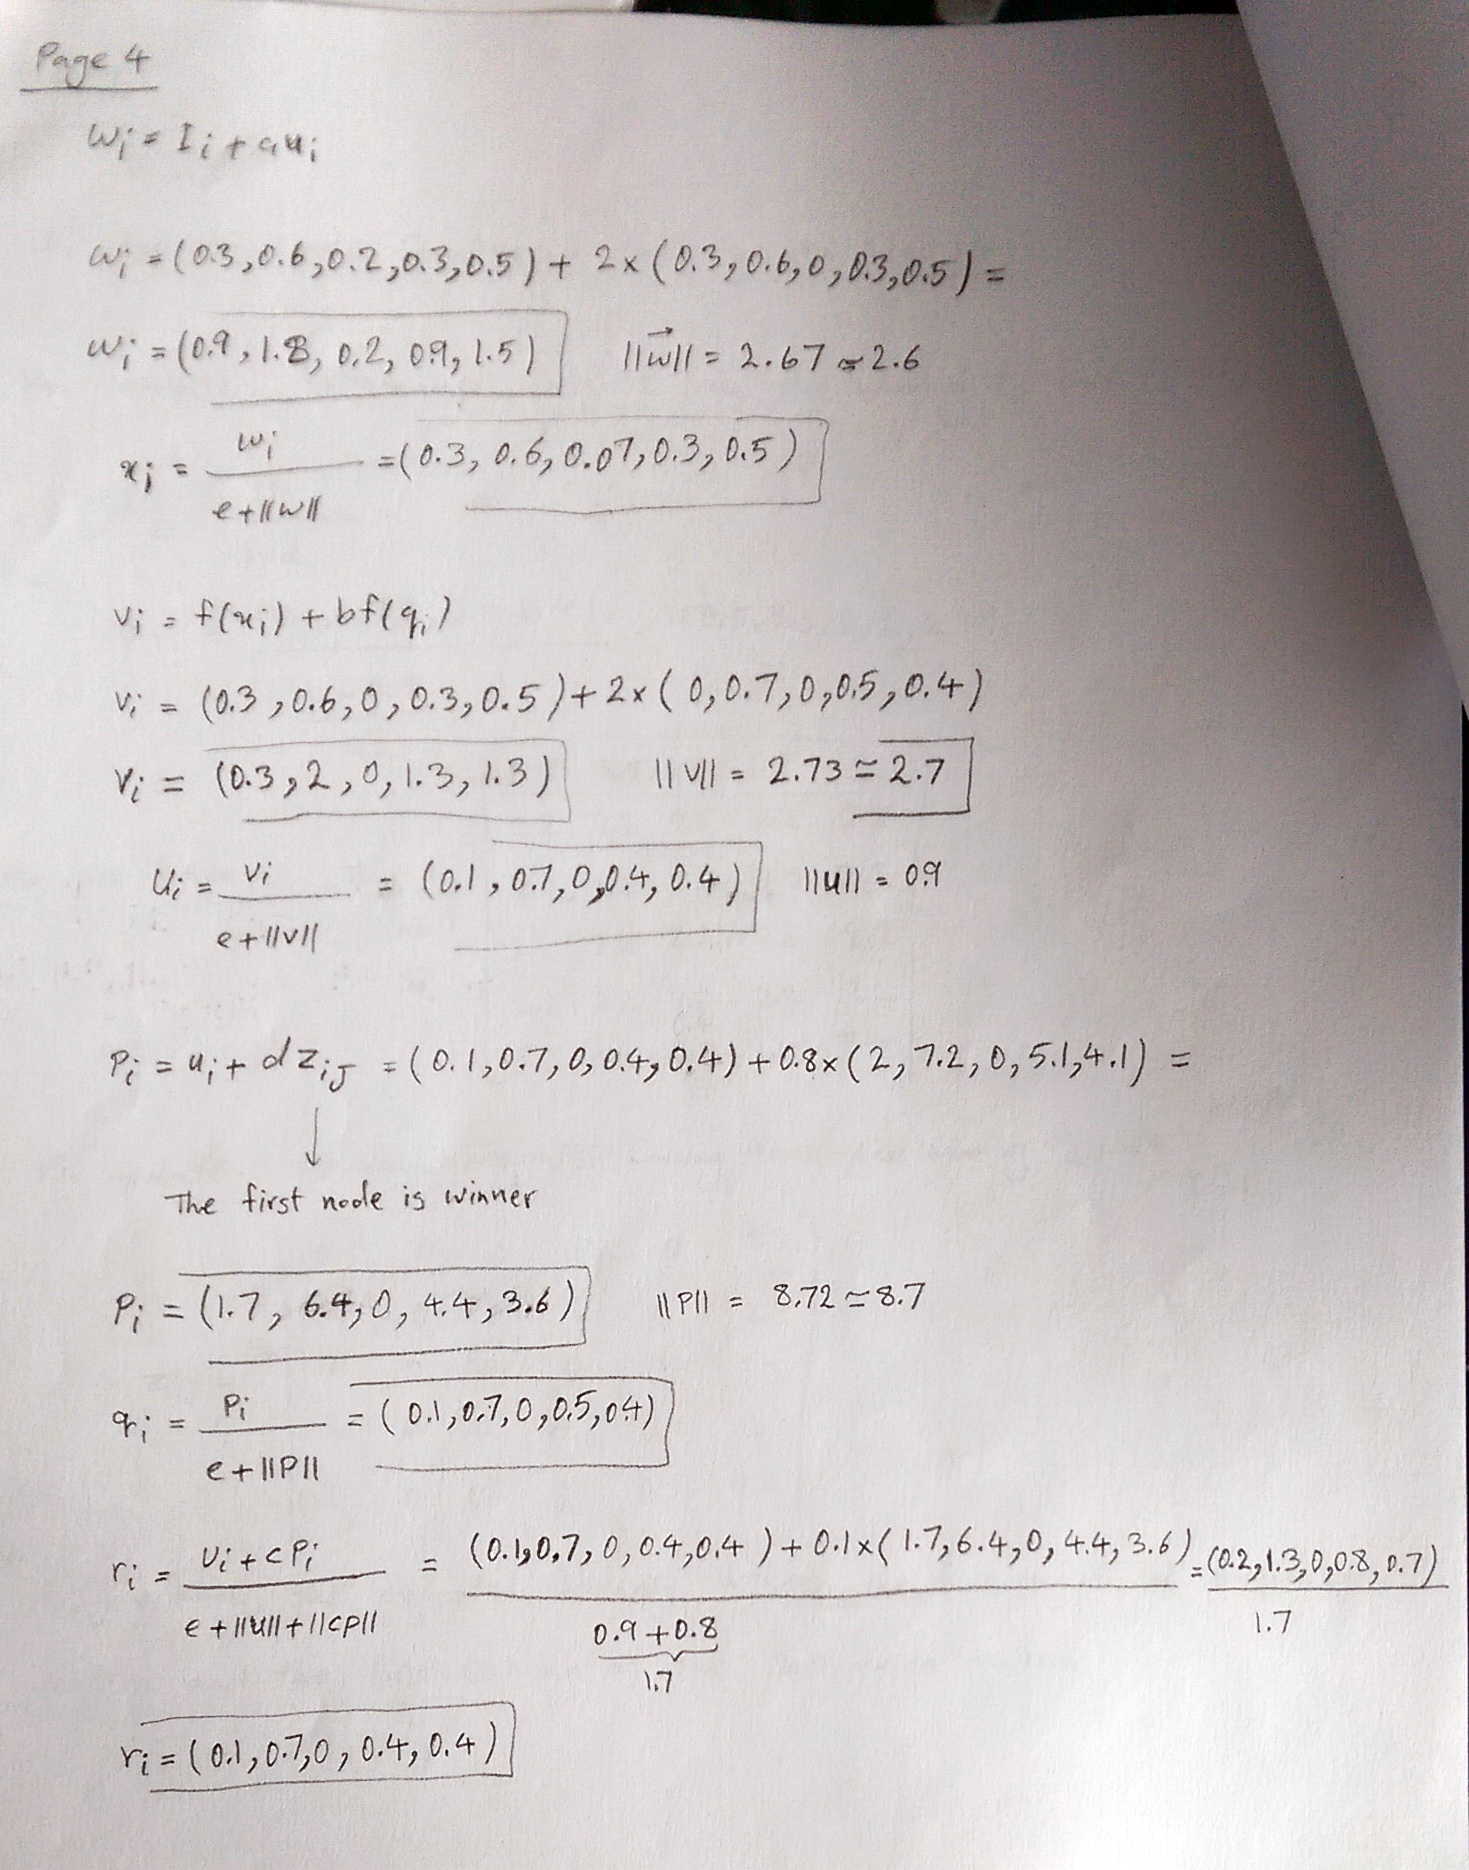 Page 4
wi = Ii + aui
wi = (0.3, 0.6, 0.2, 0.3, 0.5) + 2 x (0.3, 0.6, 0, 0.3, 0.5) =
wi = (0.9, 1.8, 0.2, 0.9, 1.5) ||w⃗|| = 2.67 ≃ 2.6
xi = wi / e + ||w|| = (0.3, 0.6, 0.07, 0.3, 0.5)
vi = f(xi) + bf(qi)
vi = (0.3, 0.6, 0, 0.3, 0.5) + 2x (0, 0.7, 0, 0.5, 0.4)
vi = (0.3, 2, 0, 1.3, 1.3) ||v|| = 2.73 ≃ 2.7
ui = vi / e + ||v|| = (0.1, 0.7, 0, 0.4, 0.4) ||u|| = 0.9
Pi = ui + dziJ = (0.1, 0.7, 0, 0.4, 0.4) + 0.8x (2, 7.2, 0, 5.1, 4.1) =
↓
The first node is winner
Pi = (1.7, 6.4, 0, 4.4, 3.6) ||P|| = 8.72 ≃ 8.7
qi = Pi / e + ||P|| = (0.1, 0.7, 0, 0.5, 0.4)
ri = ui + cPi / e + ||u|| + ||cp|| = (0.1, 0.7, 0, 0.4, 0.4) + 0.1x (1.7, 6.4, 0, 4.4, 3.6) / 0.9 + 0.8 = (0.2, 1.3, 0, 0.8, 0.7) / 1.7
1.7
ri = (0.1, 0.7, 0, 0.4, 0.4)